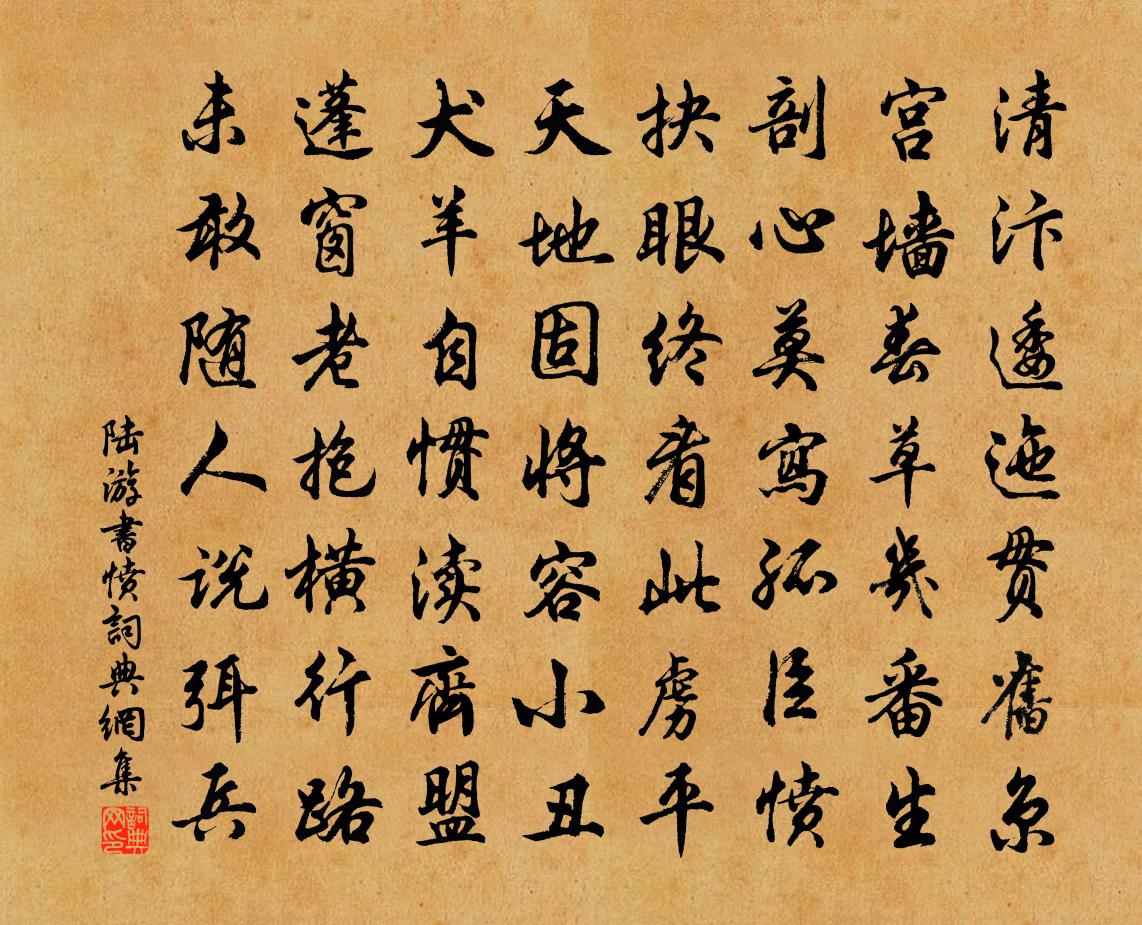 清汴逶迤贯舊京
宫墙春草幾番生
剖心莫寫孤臣憤
抉眼终看此虏平
天地固将容小丑
犬羊自慣渎齊盟
蓬窗老抱横行路
未敢随人说弭兵
陆游書憤詞典網集
詞典网印